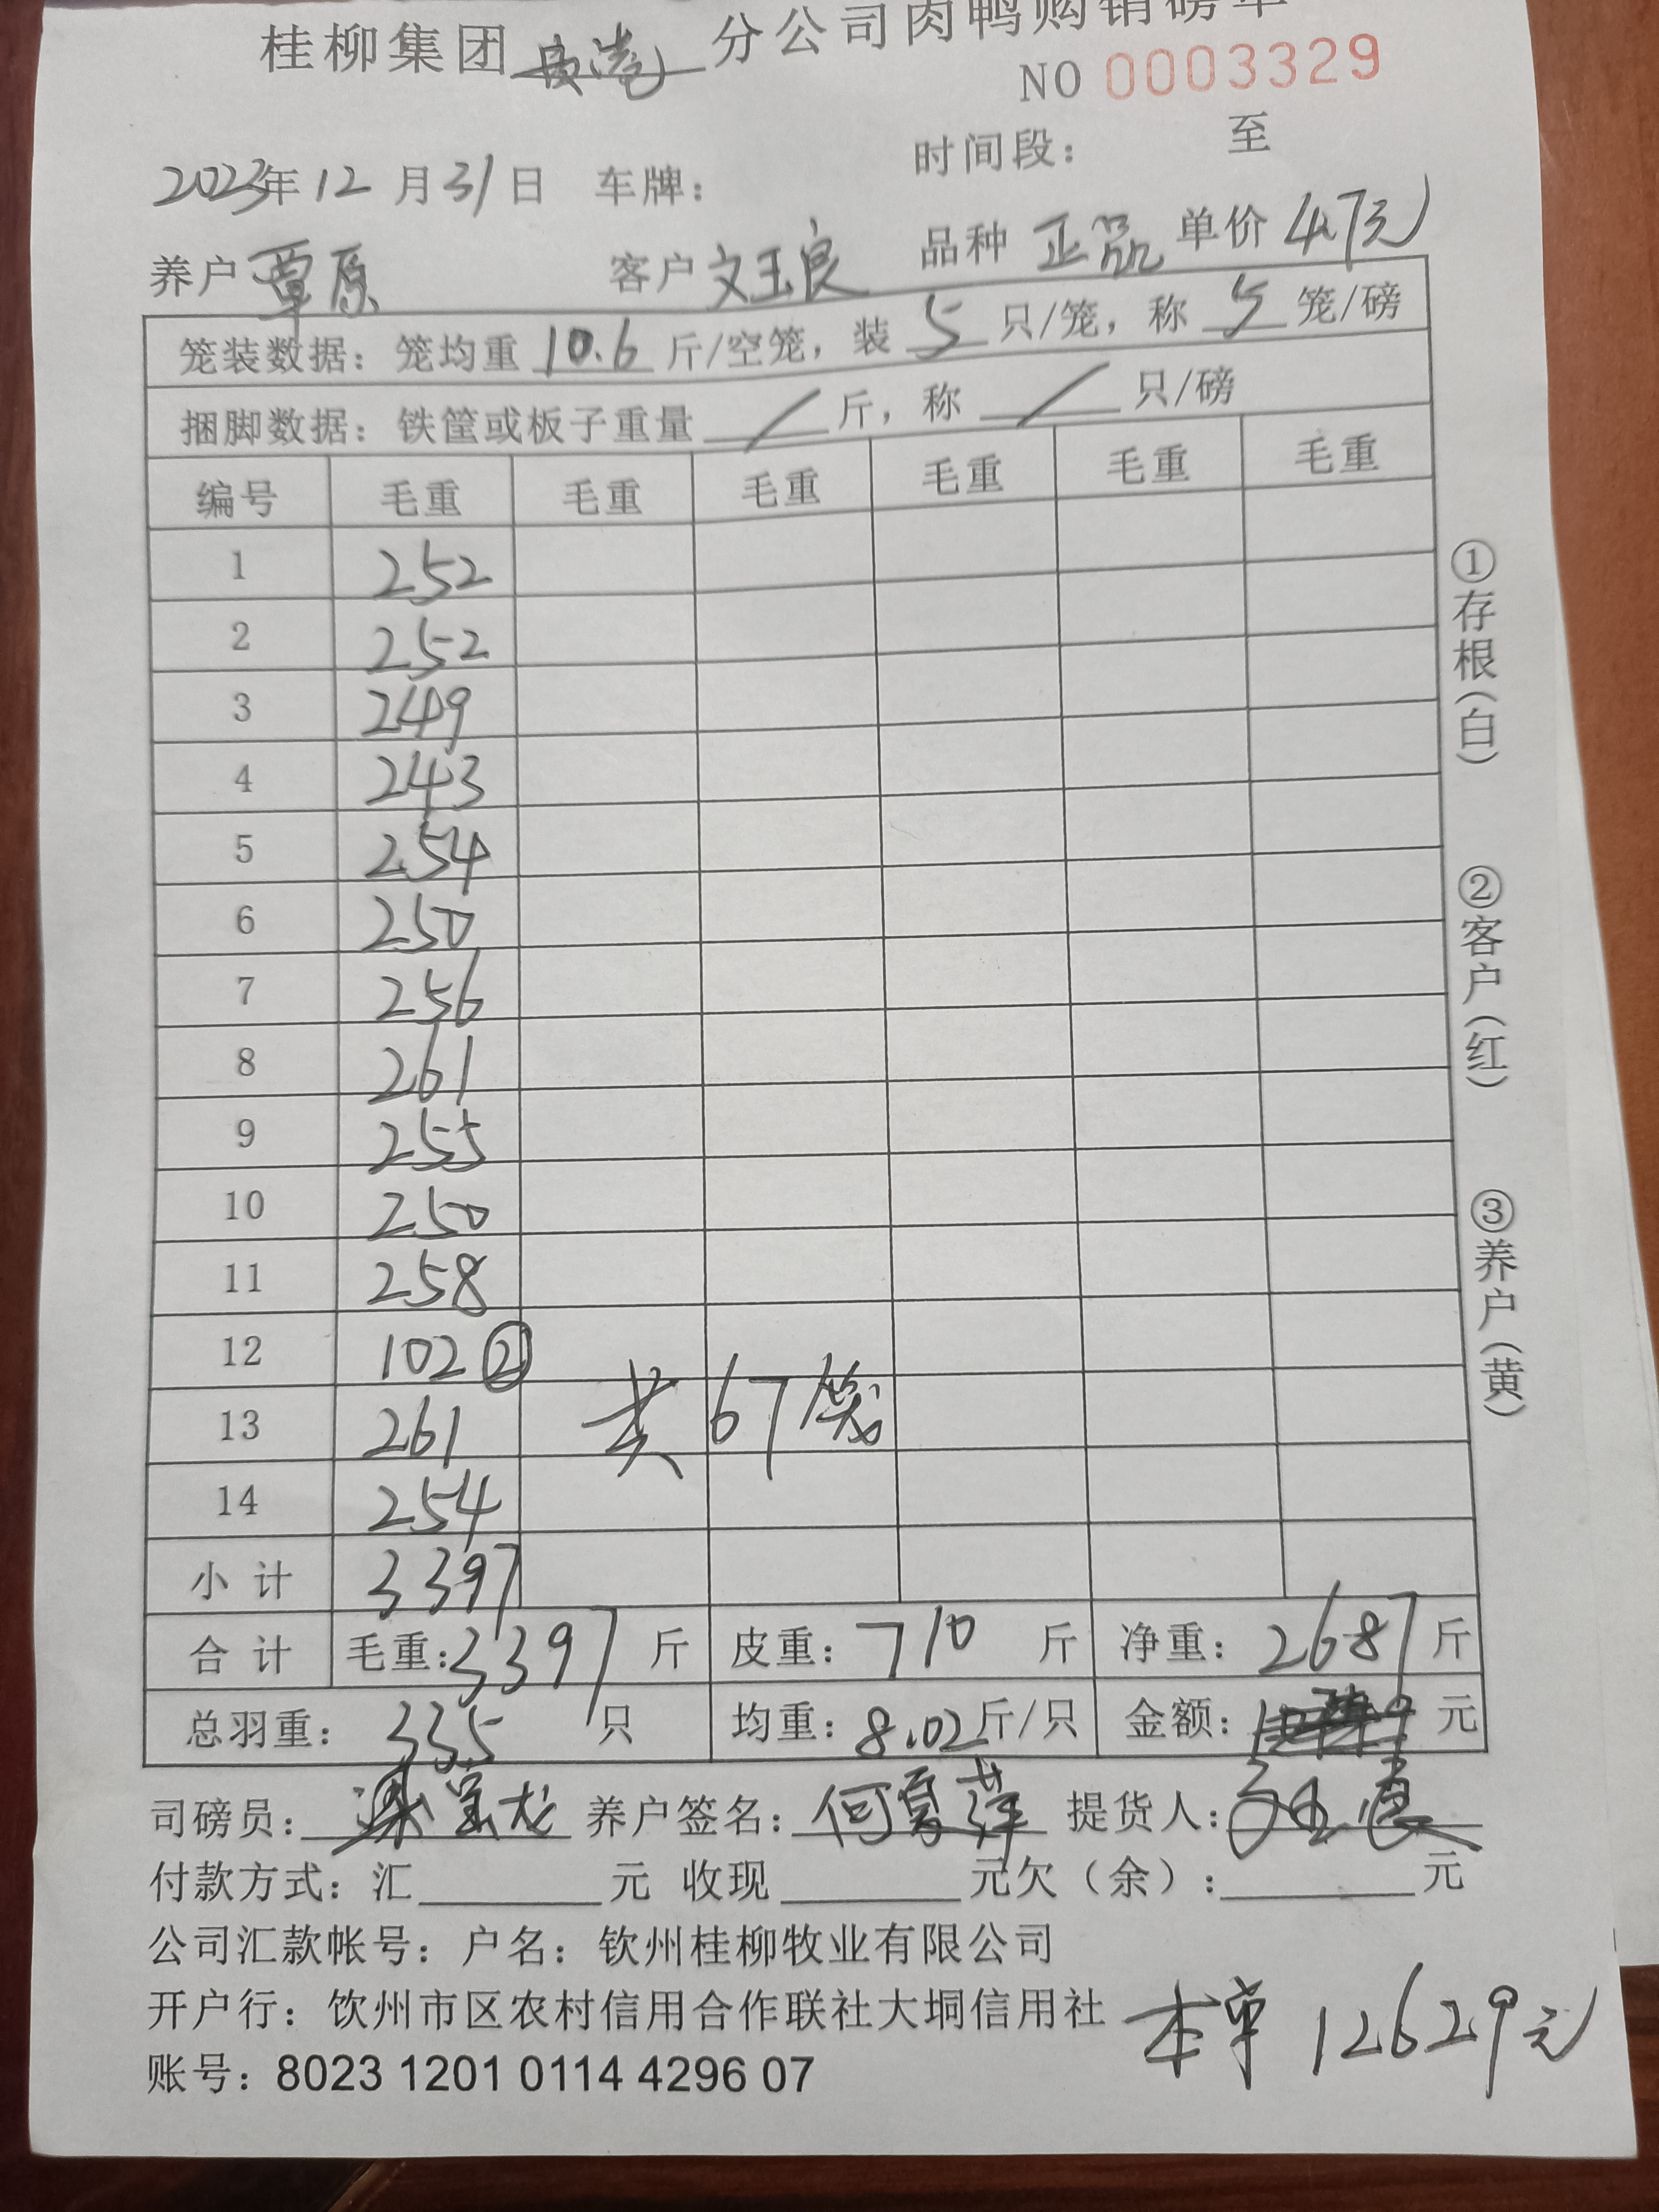 桂柳集团 分公司肉鸭购销磅单
NO 0003329
时间段： 至
2023年12月31日 车牌：
养户 覃原 客户 文玉良 品种 正品 单价 4.7元
笼装数据：笼均重 10.6 斤/空笼，装 5 只/笼，称 5 笼/磅
捆脚数据：铁筐或板子重量 / 斤，称 / 只/磅
编号 毛重 毛重 毛重 毛重 毛重 毛重
1 252
2 252
3 249
4 243
5 254
6 250
7 256
8 261
9 255
10 250
11 258
12 102 ②
13 261 共67笼
14 254
小计 3397
合计 毛重：3397 斤 皮重：710 斤 净重：2687 斤
总羽重：335 只 均重：8.02 斤/只 金额： 元
司磅员：梁宝龙 养户签名：何夏萍 提货人：文玉良
付款方式：汇 元 收现 元欠（余）： 元
公司汇款帐号：户名：钦州桂柳牧业有限公司
开户行：饮州市区农村信用合作联社大垌信用社
本单 12629元
账号：8023 1201 0114 4296 07
①存根（白）
②客户（红）
③养户（黄）